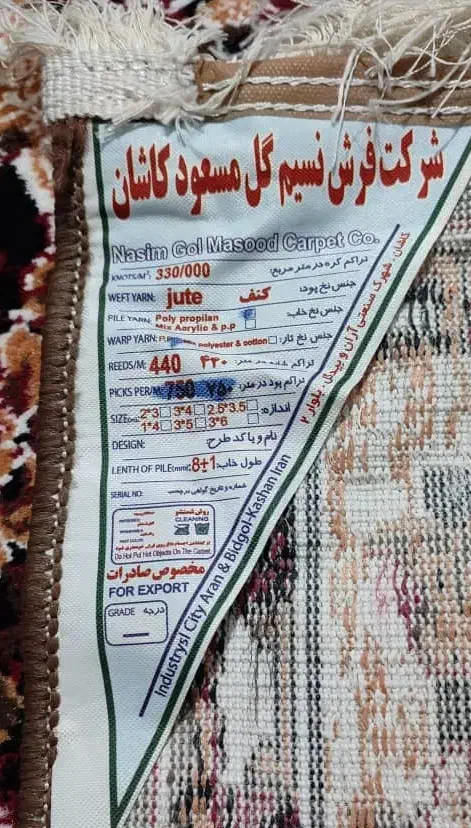 شرکت فرش نسیم گل مسعود کاشان
Nasim Gol Masood Carpet Co.
KNOTS/M²: 330/000 تراکم گره در متر مربع:
WEFT YARN: jute کنف جنس نخ پود:
PILE YARN: Poly propilan جنس نخ خاب:
Mix Acrylic & p.p
WARP YARN: polyester & cotton جنس نخ تار:
REEDS/M: 440 ۴۴۰ تراکم
PICKS PER/M: 750 ۷۵۰ تراکم پود در متر:
SIZE(m): 2*3 3*4 2.5*3.5 اندازه:
1*4 3*5 3*6
DESIGN: نام و یا کد طرح:
LENTH OF PILE(mm): 8±1 طول خاب:
SERIAL NO: شماره و تاریخ گواهی برچسب
روش شستشو
CLEANING
Do Not Put Hot Objects On The Carpet
مخصوص صادرات
FOR EXPORT
GRADE درجه
کاشان . شهرک صنعتی آران و بیدگل . بلوار ۲
Industrysl City Aran & Bidgol-Kashan Iran